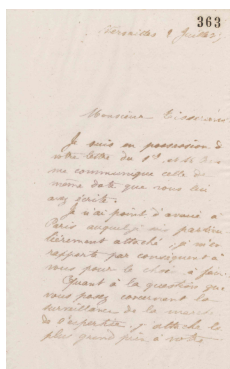 363
Versailles 8 Juillet
Monsieur
Je suis en possession de
votre lettre du 1er et de
me communique celle de
même date que vous lui
avez écrite.
Je n'ai point d'avoué à
Paris auquel je sois particu
lièrement attaché, je m'en
rapporte par conséquent à
vous pour le choix à faire
Quant à la question que
vous posez concernant la
surveillance de la marche
de l'expertise, j'attache le
plus grand prix à votre